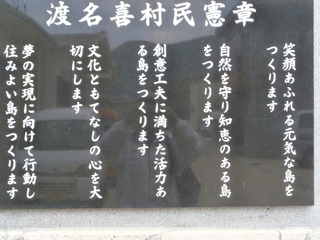 渡名喜村民憲章
笑顔あふれる元気な島を
つくります
自然を守り知恵のある島
をつくります
創意工夫に満ちた活力あ
る島をつくります
文化ともてなしの心を大
切にします
夢の実現に向けて行動し
住みよい島をつくります